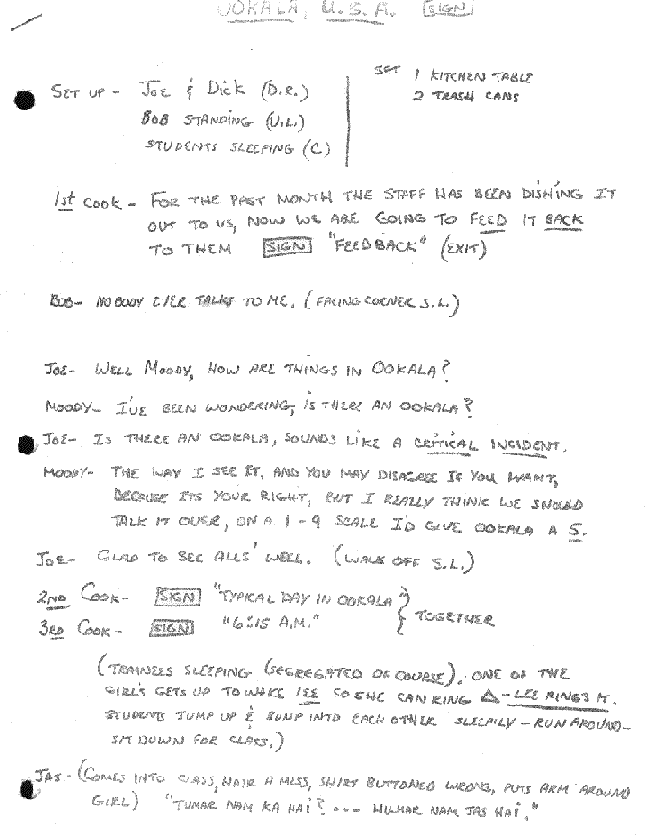 OOKALA, U.S.A. SIGN
SET UP - JOE & DICK (D.R.)
BOB STANDING (U.L.)
STUDENTS SLEEPING (C)
SET 1 KITCHEN TABLE
2 TRASH CANS
1st COOK - FOR THE PAST MONTH THE STAFF HAS BEEN DISHING IT
OUT TO US, NOW WE ARE GOING TO FEED IT BACK
TO THEM SIGN "FEEDBACK" (EXIT)
BOB - NOBODY EVER TALKS TO ME. (FACING CORNER S.L.)
JOE - WELL MOODY, HOW ARE THINGS IN OOKALA?
MOODY - I'VE BEEN WONDERING, IS THERE AN OOKALA?
JOE - IS THERE AN OOKALA, SOUNDS LIKE A CRITICAL INCIDENT.
MOODY - THE WAY I SEE IT, AND YOU MAY DISAGREE IF YOU WANT,
BECAUSE ITS YOUR RIGHT, BUT I REALLY THINK WE SHOULD
TALK IT OVER, ON A 1-9 SCALE I'D GIVE OOKALA A 5.
JOE - GLAD TO SEE ALLS' WELL. (WALK OFF S.L.)
2ND COOK - SIGN "TYPICAL DAY IN OOKALA
3RD COOK - SIGN "6:15 A.M." } TOGETHER
(TRAINEES SLEEPING (SEGREGATED OF COURSE). ONE OF THE
GIRLS GETS UP TO WAKE LEE SO SHE CAN RING △ - LEE RINGS IT.
STUDENTS JUMP UP & BUMP INTO EACH OTHER SLEEPILY - RUN AROUND -
SIT DOWN FOR CLASS.)
JAS - (COMES INTO CLASS, HAIR A MESS, SHIRT BUTTONED WRONG, PUTS ARM AROUND
GIRL) "TUMAR NAM KA HAI? --- HUMAR NAM JAS HAI."